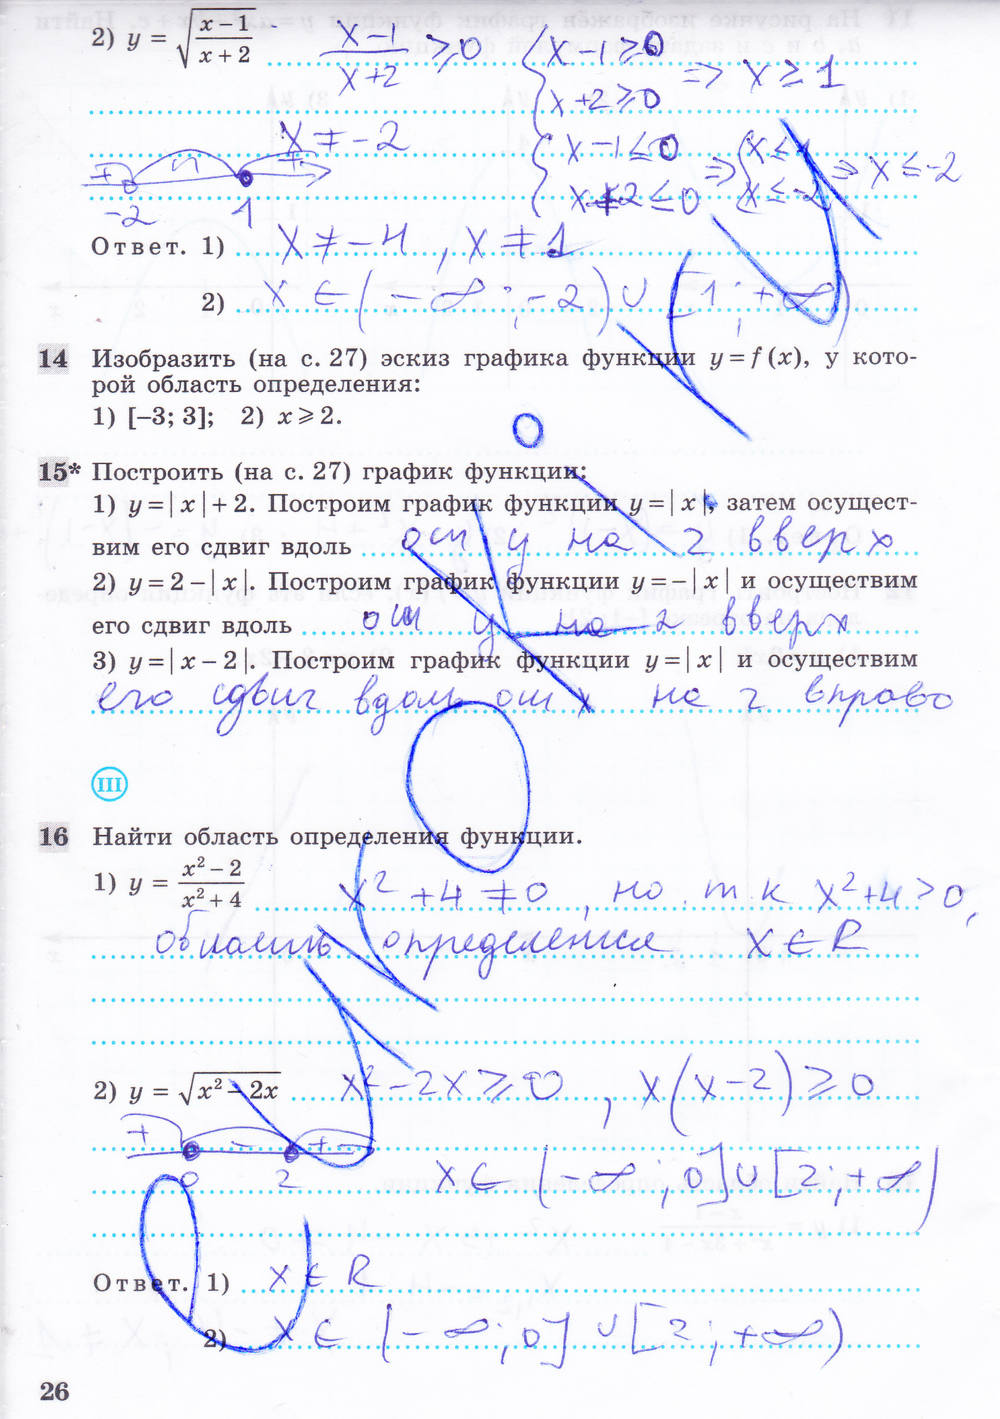 2) y = √((x − 1)/(x + 2)) (x−1)/(x+2) ≥ 0 { x−1 ≥ 0 x+2 ≥ 0 => x ≥ 1
x ≠ −2 { x−1 ≤ 0 x+2 ≤ 0 => { x ≤ 1 x ≤ −2 => x ≤ −2
+ − +
−2 1
Ответ. 1) x ≠ −4, x ≠ 1
2) x ∈ (−∞; −2) ∪ [1; +∞)
14 Изобразить (на с. 27) эскиз графика функции y = f(x), у кото-
рой область определения:
1) [−3; 3]; 2) x ⩾ 2.
15* Построить (на с. 27) график функции:
1) y = |x| + 2. Построим график функции y = |x|, затем осущест-
вим его сдвиг вдоль оси y на 2 вверх
2) y = 2 − |x|. Построим график функции y = −|x| и осуществим
его сдвиг вдоль оси y на 2 вверх
3) y = |x − 2|. Построим график функции y = |x| и осуществим
его сдвиг вдоль оси x на 2 вправо
III
16 Найти область определения функции.
1) y = (x² − 2)/(x² + 4) x² + 4 ≠ 0, но т к x² + 4 > 0,
область определения x ∈ R
2) y = √(x² − 2x) x² − 2x ≥ 0, x(x − 2) ≥ 0
+ − +
0 2 x ∈ (−∞; 0] ∪ [2; +∞)
Ответ. 1) x ∈ R
2) x ∈ (−∞; 0] ∪ [2; +∞)
26